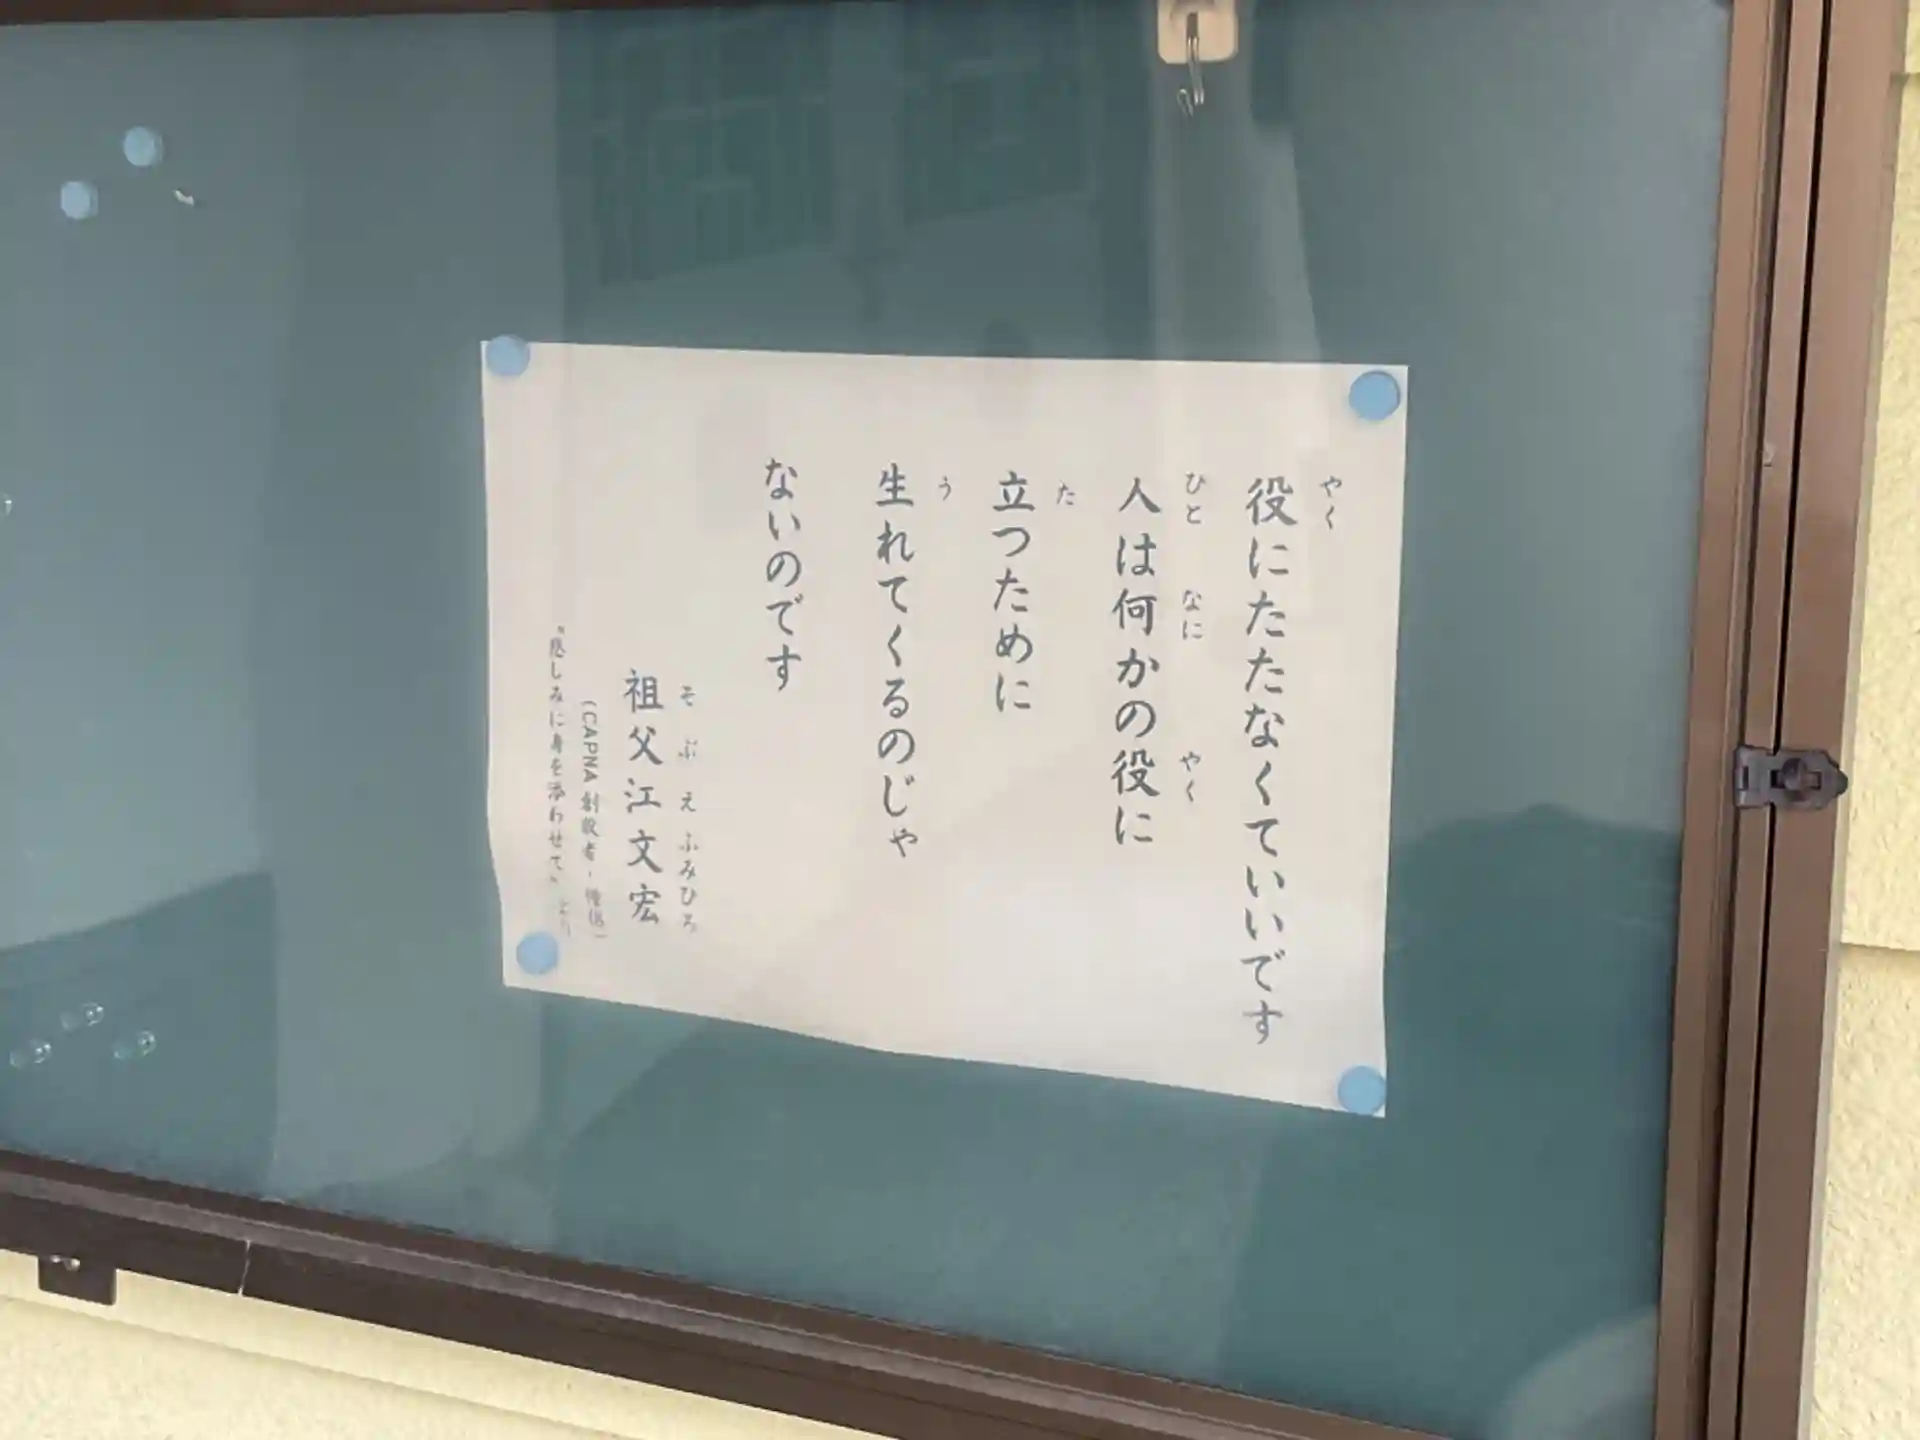 役にたたなくていいです
人は何かの役に
立つために
生れてくるのじゃ
ないのです
祖父江文宏
(CAPNA 創設者・僧侶)
"悲しみに身を添わせて" より